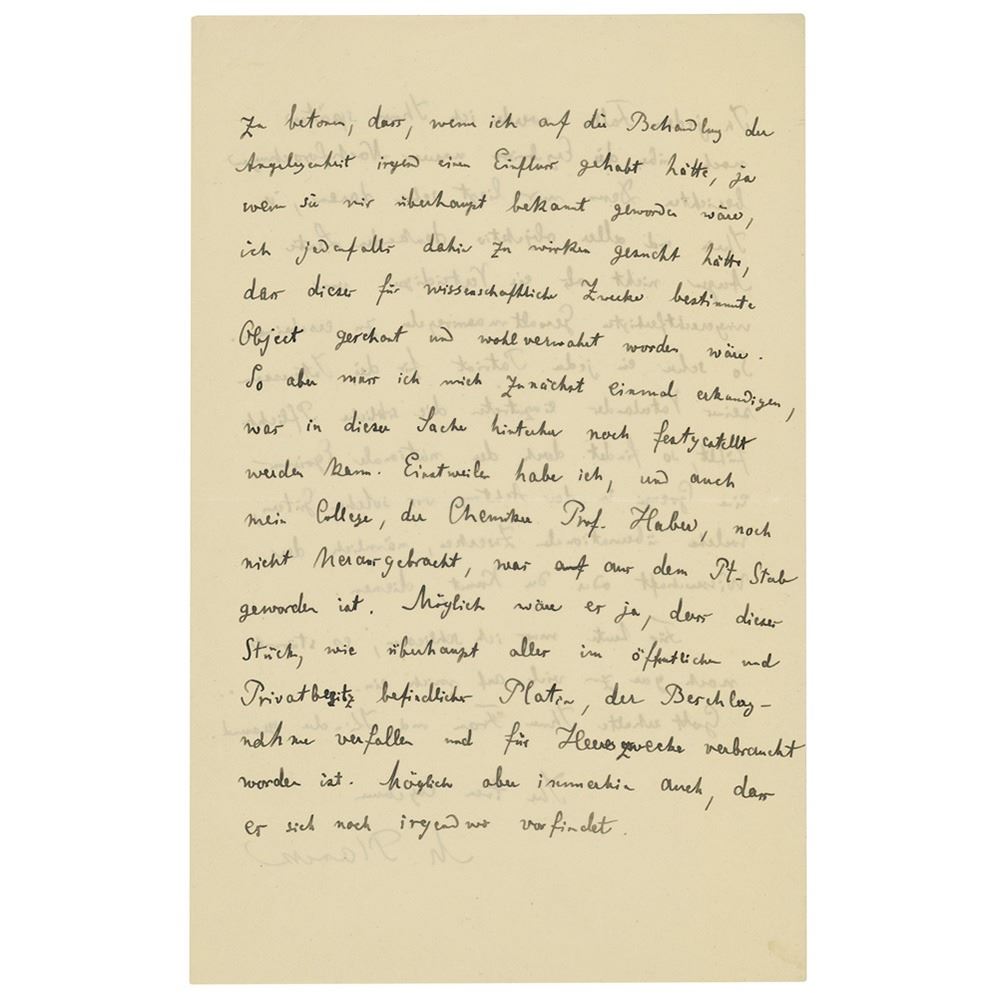 zu betonen, dass, wenn ich auf die Behandlung der
Angelegenheit irgend einen Einfluss gehabt hätte, ja
wenn sie mir überhaupt bekannt geworden wäre,
ich jedenfalls dahin zu wirken gesucht hätte,
dass dieser für wissenschaftliche Zwecke bestimmte
Object geschont und wohlverwahrt worden wäre.
So aber muss ich mich zunächst einmal erkundigen,
was in dieser Sache hinterher noch festgestellt
werden kann. Einstweilen habe ich, und auch
mein College, der Chemiker Prof. Haber, noch
nicht herausgebracht, was aus dem Pt-Stab
geworden ist. Möglich wäre es ja, dass dieser
Stück, wie überhaupt alles im öffentlichen und
Privatbesitz befindliche Platin, der Beschlag-
nahme verfallen und für Heereszwecke verbraucht
worden ist. Möglich aber immerhin auch, dass
es sich noch irgendwo vorfindet.